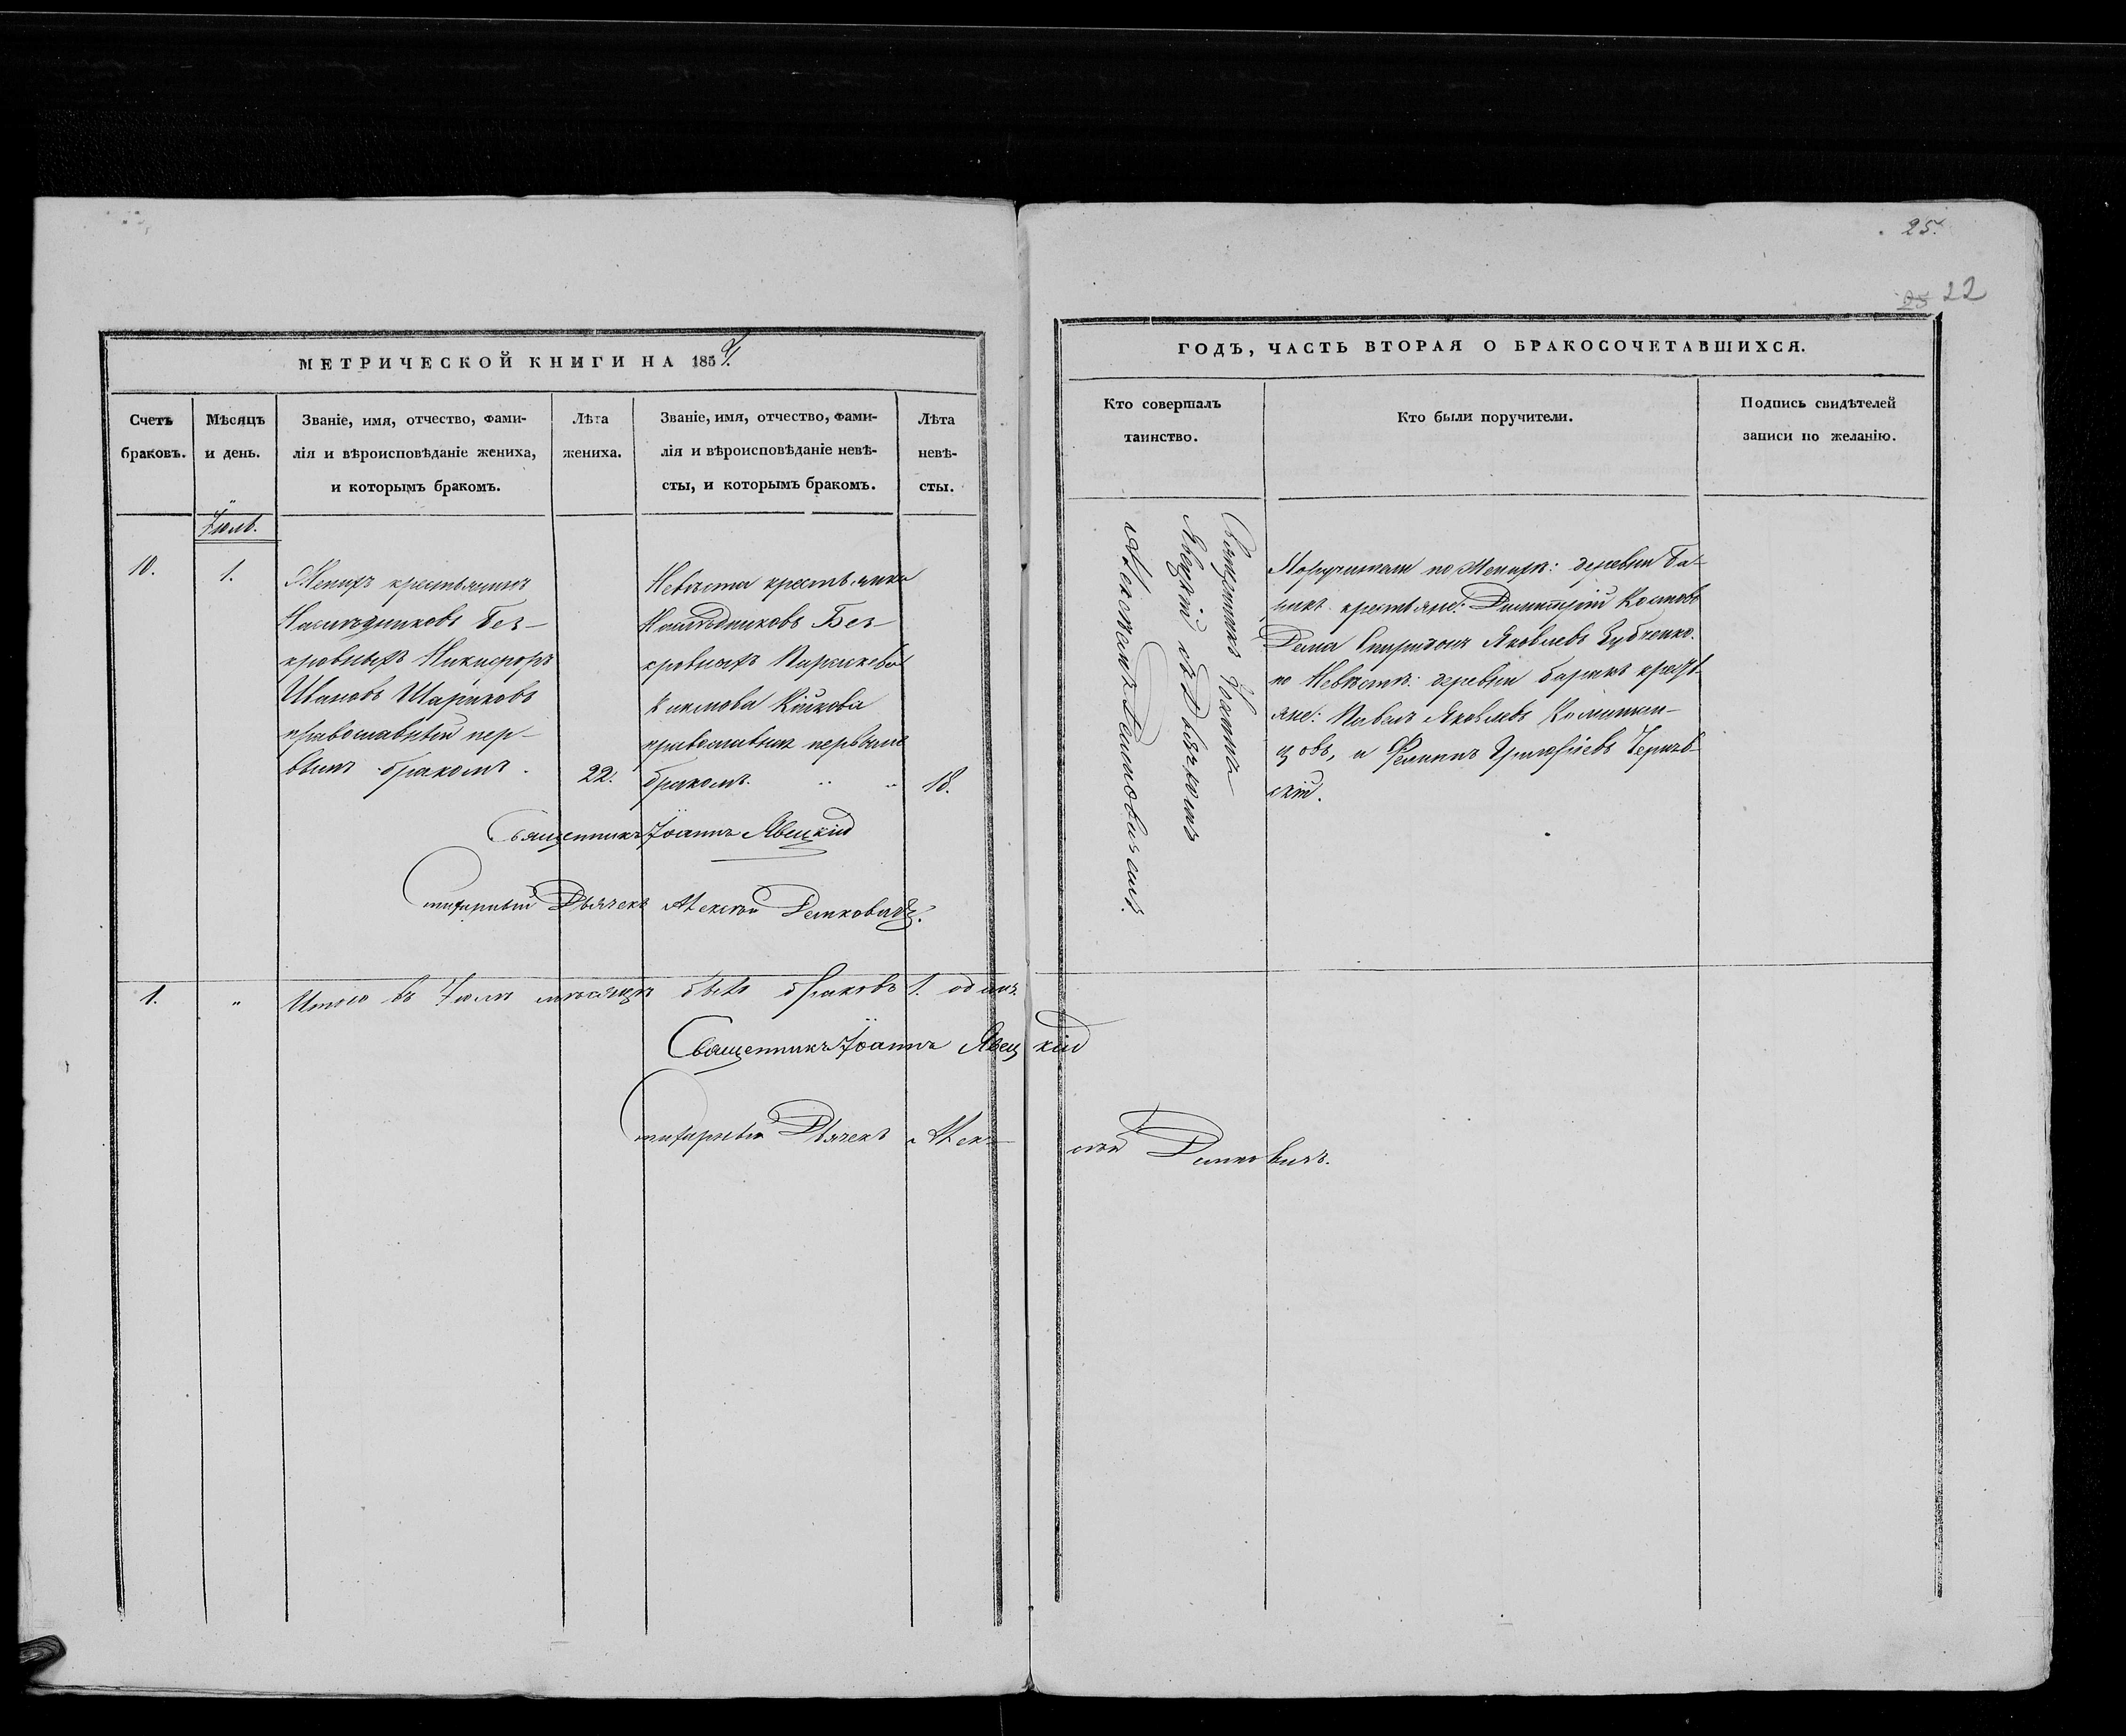 25.
25 22
МЕТРИЧЕСКОЙ КНИГИ НА 185
ГОДЪ, ЧАСТЬ ВТОРАЯ О БРАКОСОЧЕТАВШИХСЯ.
Счетъ
браковъ.
Мѣсяцъ
и день.
Званіе, имя, отчество, фами-
лія и вѣроисповѣданіе жениха,
и которымъ бракомъ.
Лѣта
жениха.
Званіе, имя, отчество, фами-
лія и вѣроисповѣданіе невѣ-
сты, и которымъ бракомъ.
Лѣта
невѣ-
сты.
Кто совершалъ
таинство.
Кто были поручители.
Подпись свидѣтелей
записи по желанію.
Іюль.
10.
1.
Женихъ крестьянинъ
Наслѣдниковъ Без-
кровныхъ Никифоръ
Ивановъ Шариковъ
православный пер-
вымъ бракомъ.
22.
Невѣста крестьянка
Наслѣдниковъ Без-
кровныхъ
православная первымъ
бракомъ.
18.
Священникъ Іоаннъ Явецкій
съ Дьячкомъ
по Женихѣ: деревни Ба-
крестьяне: Димитрій
Спиридонъ Яковлевъ Зубченко.
по Невѣстѣ: деревни крестья-
яне: Павелъ Яковлевъ
и Филиппъ Григорьевъ
скій.
Священникъ Іоаннъ Явецкій
Стихарный Дьячекъ Алексѣй Демковичъ.
1. " Итого въ Іюлѣ мѣсяцѣ бѣло браковъ 1. одинъ.
Священникъ Іоаннъ Явецкій
Стихарный Дьячекъ Алексѣй Демковичъ.